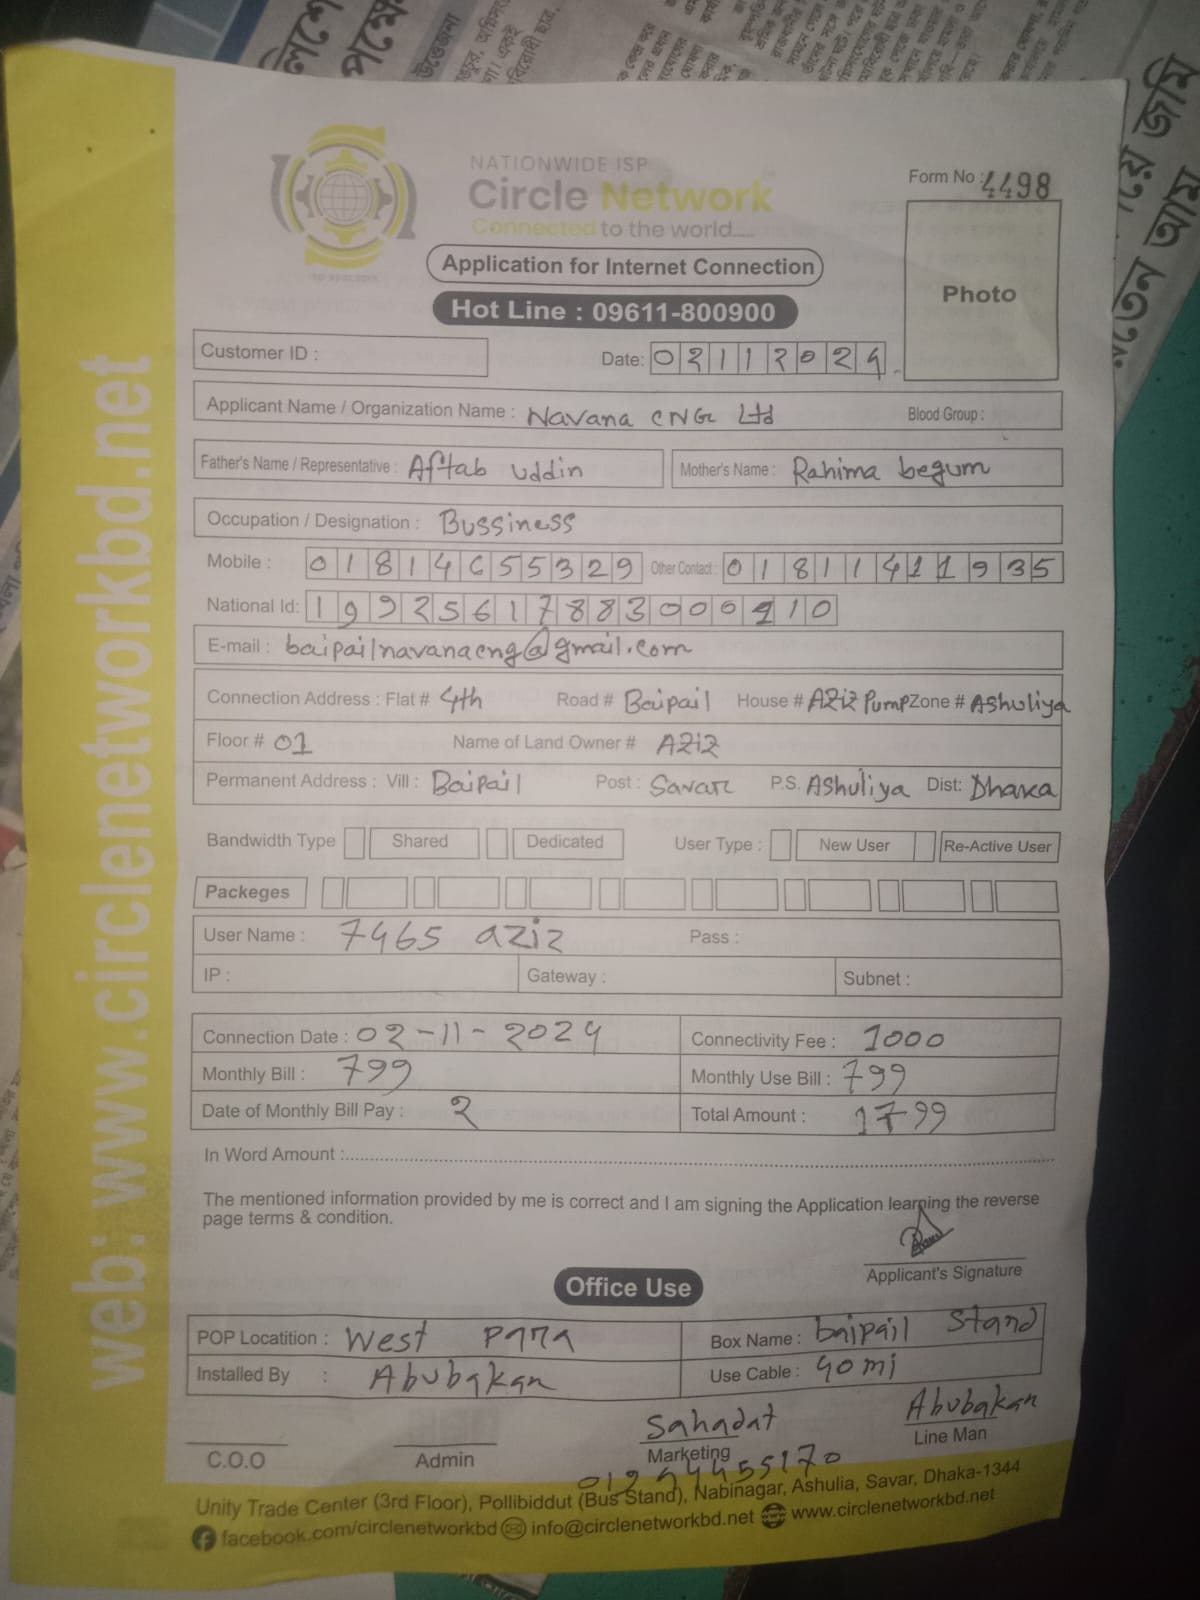 NATIONWIDE ISP
Circle Network
Connected to the world....
Form No : 4498
Application for Internet Connection
Hot Line : 09611-800900
Photo
Customer ID :
Date: 02112024
Applicant Name / Organization Name : Navana CNG Ltd Blood Group :
Father's Name / Representative : Aftab uddin Mother's Name : Rahima begum
Occupation / Designation : Bussiness
Mobile : 01814655329 Other Contact : 01811411935
National Id: 19925617883000210
E-mail : baipailnavanacng@gmail.com
Connection Address : Flat # 4th Road # Baipail House # AZiZ Pump Zone # Ashuliya
Floor # 01 Name of Land Owner # AZiZ
Permanent Address : Vill : Baipail Post : Savar P.S. Ashuliya Dist: Dhaka
Bandwidth Type Shared Dedicated User Type : New User Re-Active User
Packeges
User Name : 7465 aziz Pass :
IP : Gateway : Subnet :
Connection Date : 02-11-2024 Connectivity Fee : 1000
Monthly Bill : 799 Monthly Use Bill : 799
Date of Monthly Bill Pay : 2 Total Amount : 1799
In Word Amount :
The mentioned information provided by me is correct and I am signing the Application learning the reverse
page terms & condition.
Applicant's Signature
Office Use
POP Locatition : West Para Box Name : baipail Stand
Installed By : Abubakar Use Cable : 40 mi
Sahadat Abubakar
C.O.O Admin Marketing Line Man
Unity Trade Center (3rd Floor), Pollibiddut (Bus Stand), Nabinagar, Ashulia, Savar, Dhaka-1344
facebook.com/circlenetworkbd info@circlenetworkbd.net www.circlenetworkbd.net
web: www.circlenetworkbd.net